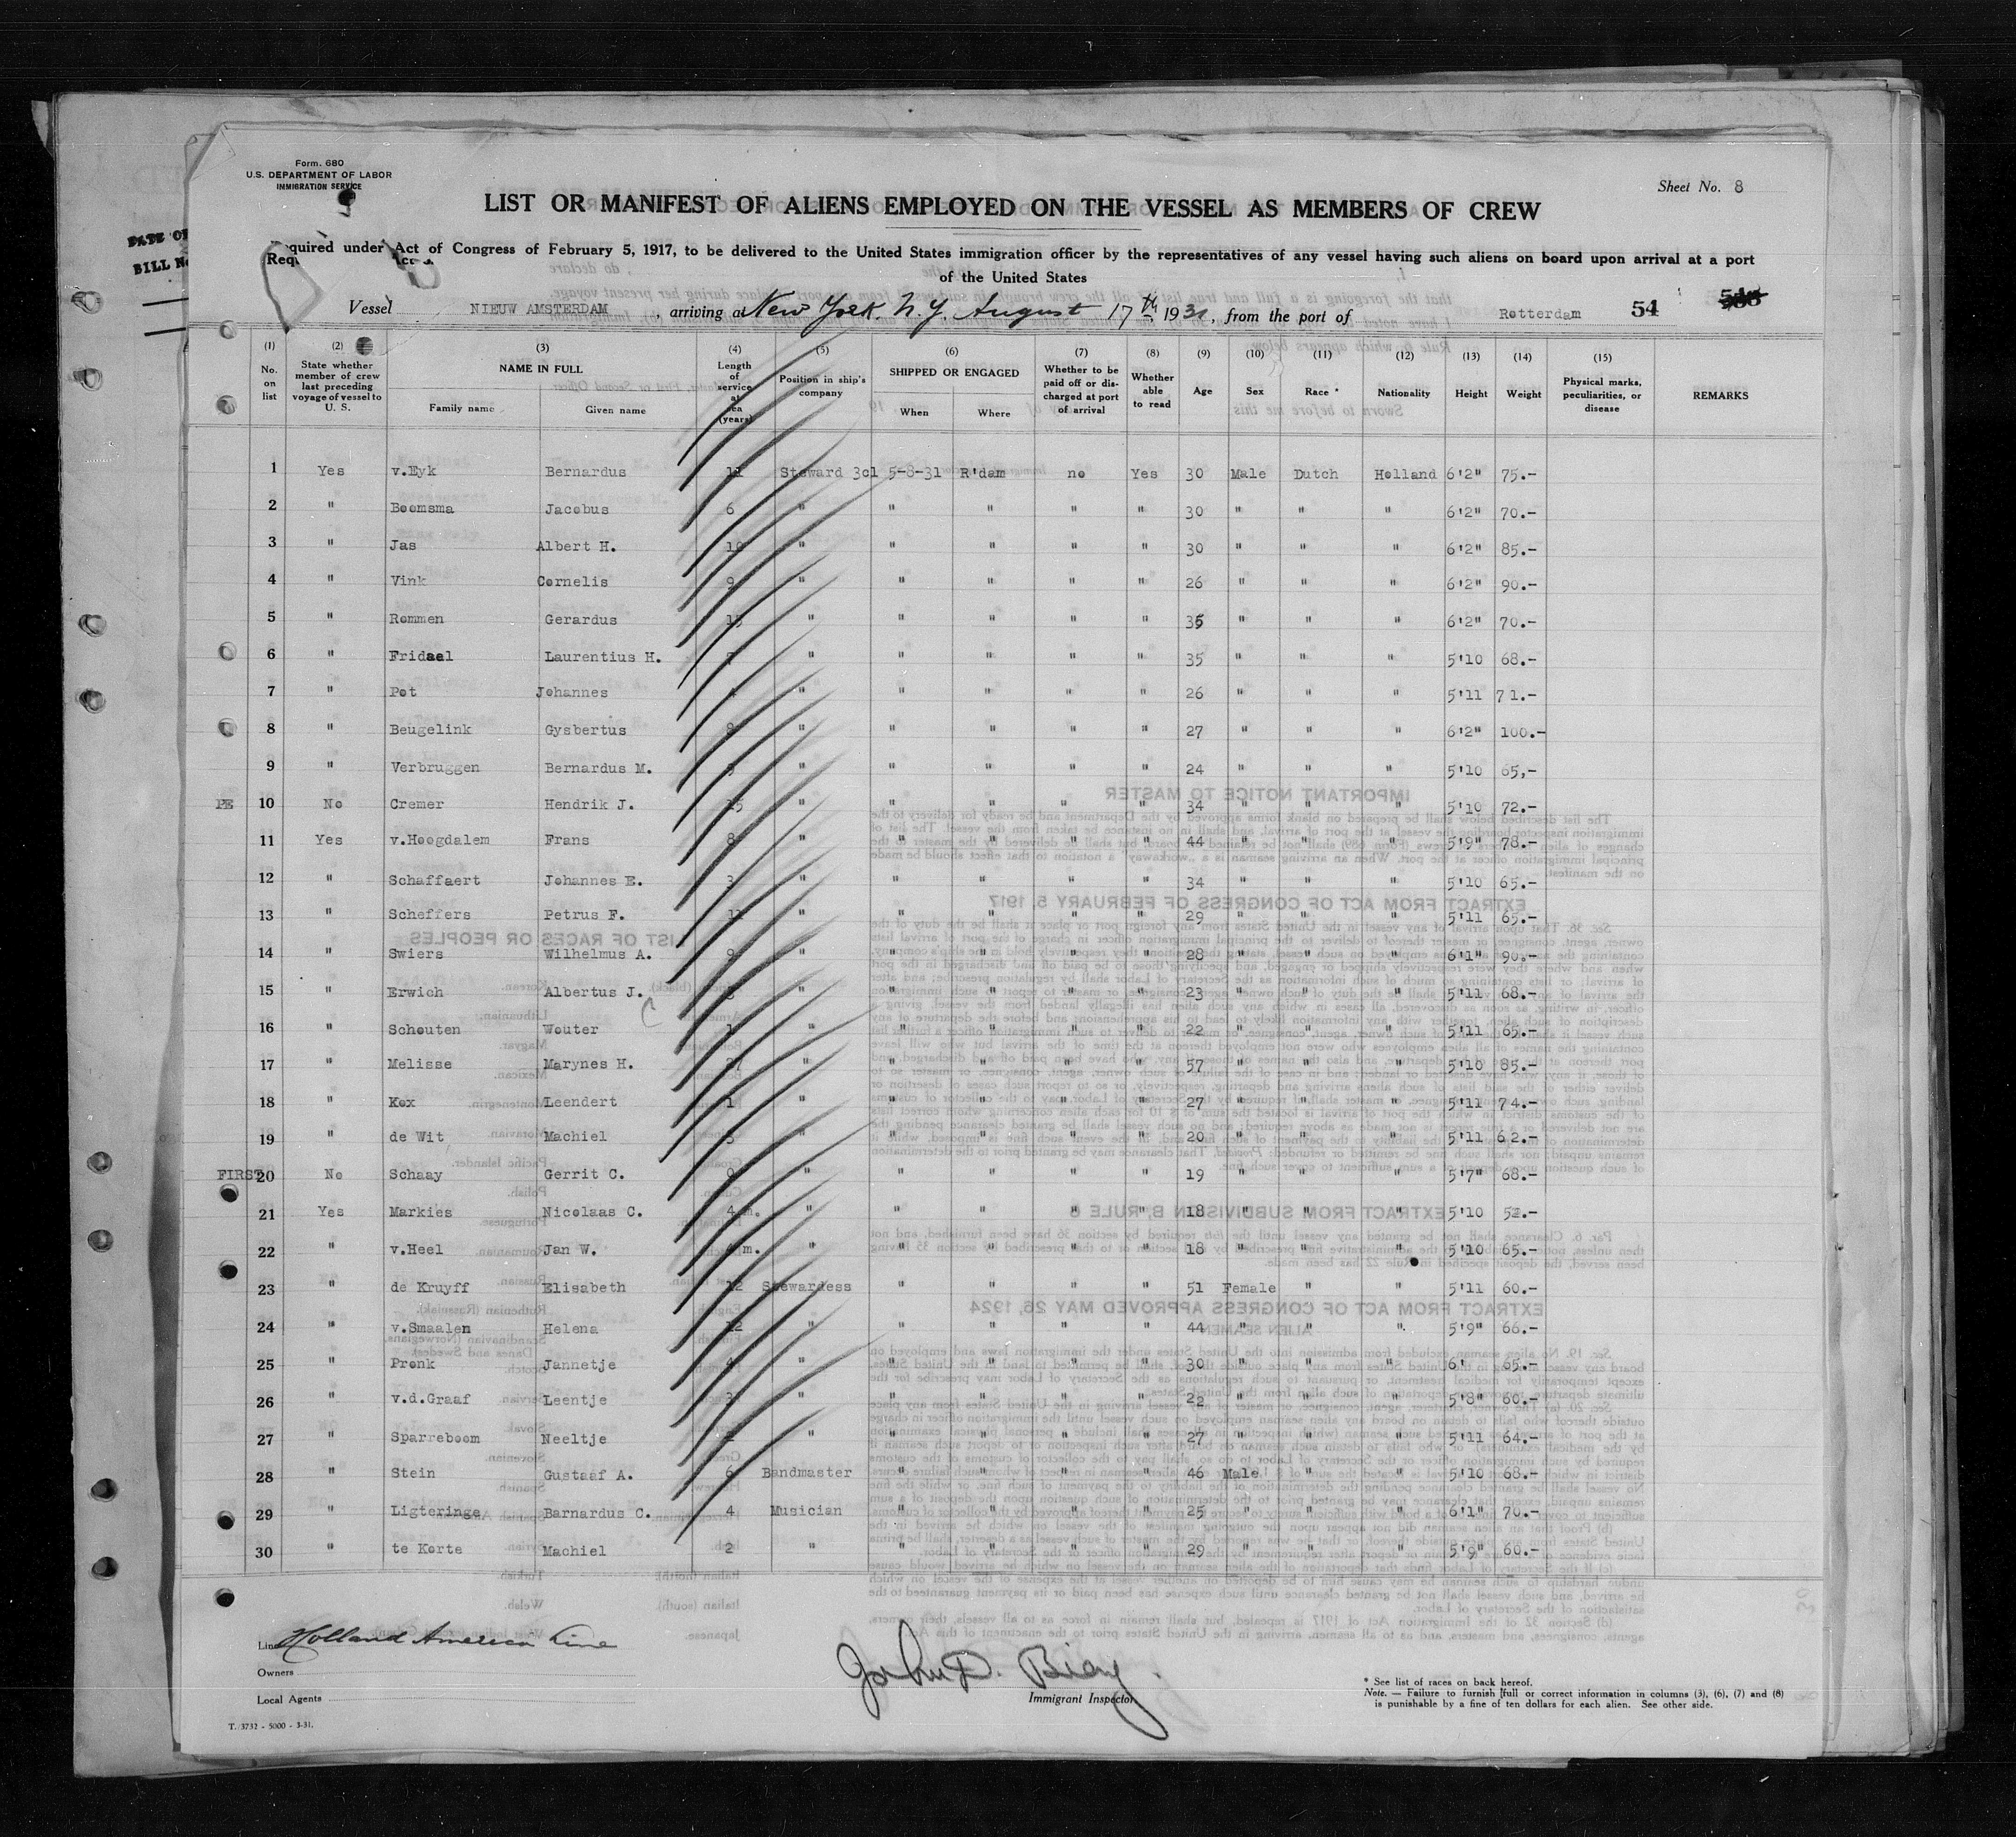 Form. 680
U.S. DEPARTMENT OF LABOR
IMMIGRATION SERVICE
Sheet No. 8
LIST OR MANIFEST OF ALIENS EMPLOYED ON THE VESSEL AS MEMBERS OF CREW
Required under Act of Congress of February 5, 1917, to be delivered to the United States immigration officer by the representatives of any vessel having such aliens on board upon arrival at a port
of the United States
Vessel NIEUW AMSTERDAM, arriving at New York, N.Y. August 17th 1931, from the port of Rotterdam 54
(1) No. on list (2) State whether member of crew last preceding voyage of vessel to U. S. (3) NAME IN FULL Family name Given name (4) Length of service at sea (years) (5) Position in ship's company (6) SHIPPED OR ENGAGED When Where (7) Whether to be paid off or discharged at port of arrival (8) Whether able to read (9) Age (10) Sex (11) Race * (12) Nationality (13) Height (14) Weight (15) Physical marks, peculiarities, or disease REMARKS
1 Yes v.Eyk Bernardus 11 Steward 3cl 5-8-31 R'dam no Yes 30 Male Dutch Holland 6'2" 75.-
2 " Boomsma Jacobus 6 " " " " " 30 " " " 6'2" 70.-
3 " Jas Albert H. 10 " " " " " 30 " " " 6'2" 85.-
4 " Vink Cornelis 9 " " " " " 26 " " " 6'2" 90.-
5 " Rommen Gerardus 15 " " " " " 35 " " " 6'2" 70.-
6 " Fridael Laurentius H. " " " " " 35 " " " 5'10 68.-
7 " Pot Johannes 4 " " " " " 26 " " " 5'11 71.-
8 " Beugelink Gysbertus " " " " " 27 " " " 6'2" 100.-
9 " Verbruggen Bernardus M. " " " " " 24 " " " 5'10 65,-
PE 10 No Cremer Hendrik J. 15 " " " " " 34 " " " 5'10 72.-
11 Yes v.Hoogdalem Frans 8 " " " " " 44 " " " 5'9" 78.-
12 " Schaffaert Johannes E. 3 " " " " " 34 " " " 5'10 65.-
13 " Scheffers Petrus F. 11 " " " " " 29 " " " 5'11 65.-
14 " Swiers Wilhelmus A. 9 " " " " " 28 " " " 6'1" 90.-
15 " Erwich Albertus J. " " " " " 23 " " " 5'11 68.-
16 " Schouten Wouter 1 " " " " " 22 " " " 5'11 65.-
17 " Melisse Marynes H. 27 " " " " " 57 " " " 5'10 85.-
18 " Kox Leendert 1 " " " " " 27 " " " 5'11 74.-
19 " de Wit Machiel " " " " " 20 " " " 5'11 62.-
FIRST 20 No Schaay Gerrit C. 0 " " " " " 19 " " " 5'7" 68.-
21 Yes Markies Nicolaas C. 4 m. " " " " " 18 " " " 5'10 52.-
22 " v.Heel Jan W. 4 m. " " " " " 18 " " " 5'10 65.-
23 " de Kruyff Elisabeth 12 Stewardess " " " " 51 Female " " 5'11 60.-
24 " v.Smaalen Helena 12 " " " " " 44 " " " 5'9" 66.-
25 " Pronk Jannetje 4 " " " " " 30 " " " 6' 65.-
26 " v.d.Graaf Leentje 3 " " " " " 22 " " " 5'8" 60.-
27 " Sparreboom Neeltje 2 " " " " " 27 " " " 5'11 64.-
28 " Stein Gustaaf A. 6 Bandmaster " " " " 46 Male " " 5'10 68.-
29 " Ligteringe Barnardus C. 4 Musician " " " " 25 " " " 6'1" 70.-
30 " te Korte Machiel 2 " " " " " 29 " " " 5'9" 60.-
Line Holland America Line
Owners
Local Agents
T. 3732 - 5000 - 3-31.
Immigrant Inspector
* See list of races on back hereof.
Note. — Failure to furnish full or correct information in columns (3), (6), (7) and (8)
is punishable by a fine of ten dollars for each alien. See other side.